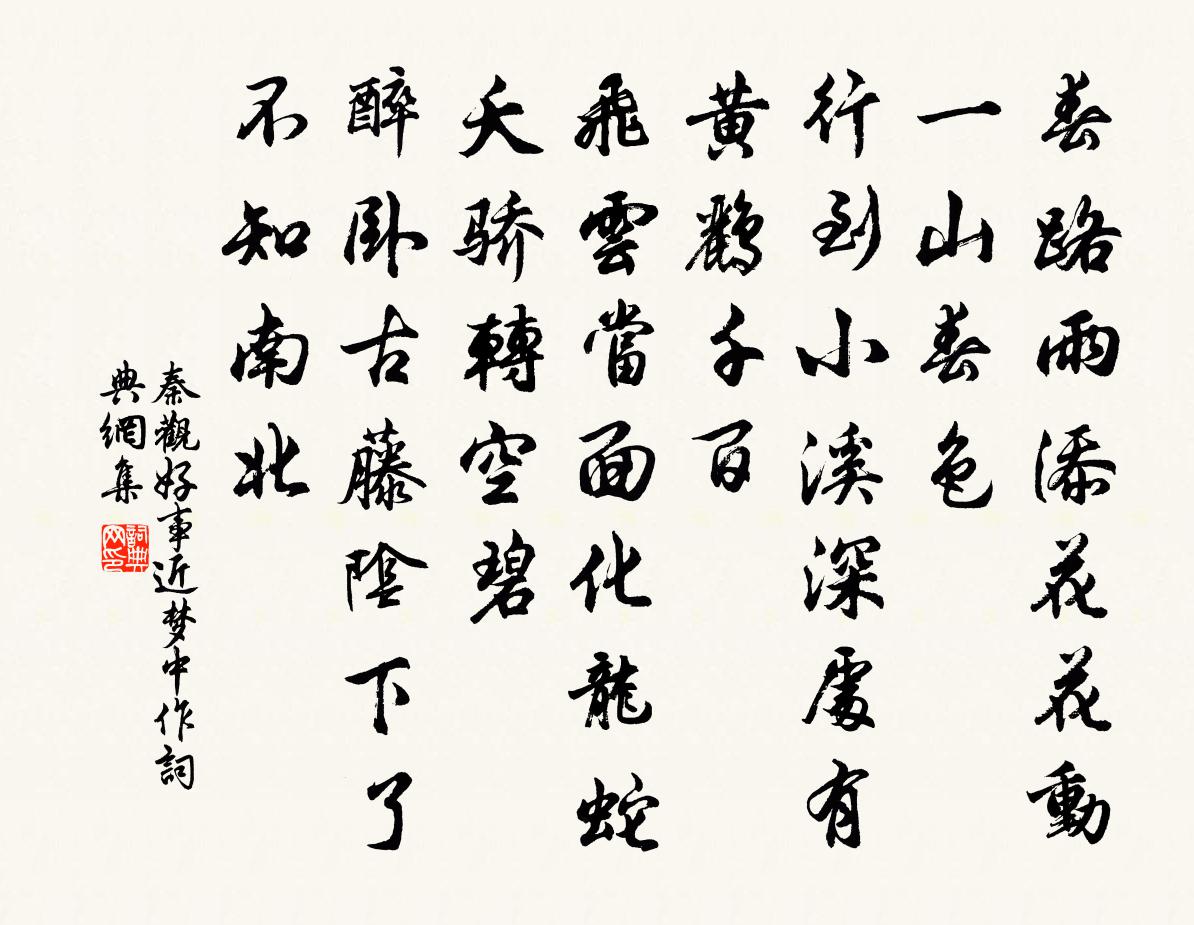 春路雨添花花動
一山春色
行到小溪深處有
黄鸝千百
飛雲當面化龍蛇
夭骄轉空碧
醉卧古藤陰下了
不知南北
秦觀好事近梦中作詞
典網集
詞典
网印